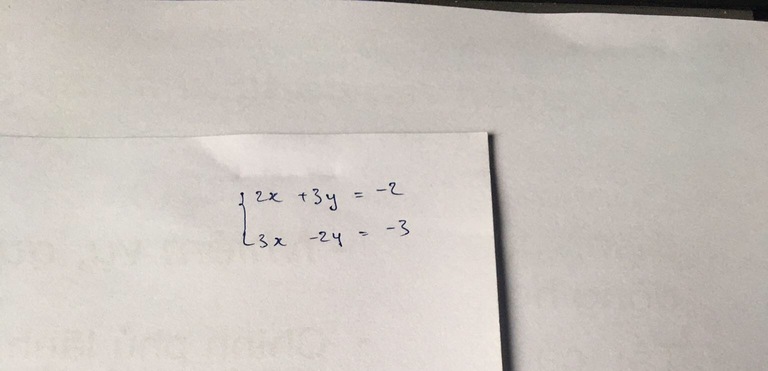 { 2x + 3y = -2
3x - 2y = -3